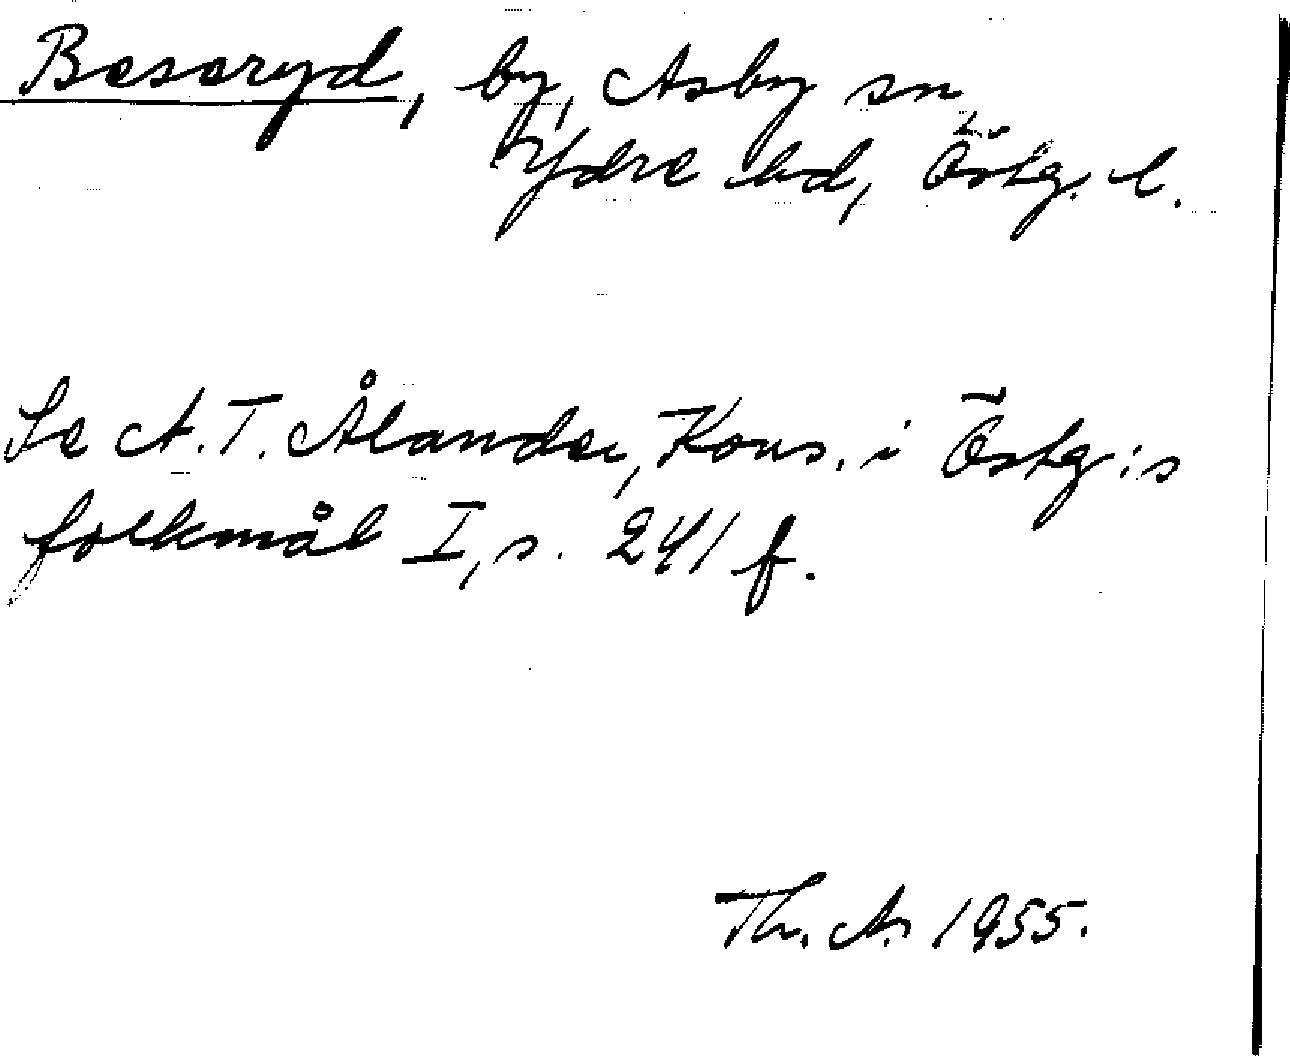 Beseryd, by, Asby sn
Ydre hd, Östg. l.
Se A. T. Ålander, Kons. i Östg:s
folkmål I, s. 241 f.
Th. A. 1955.